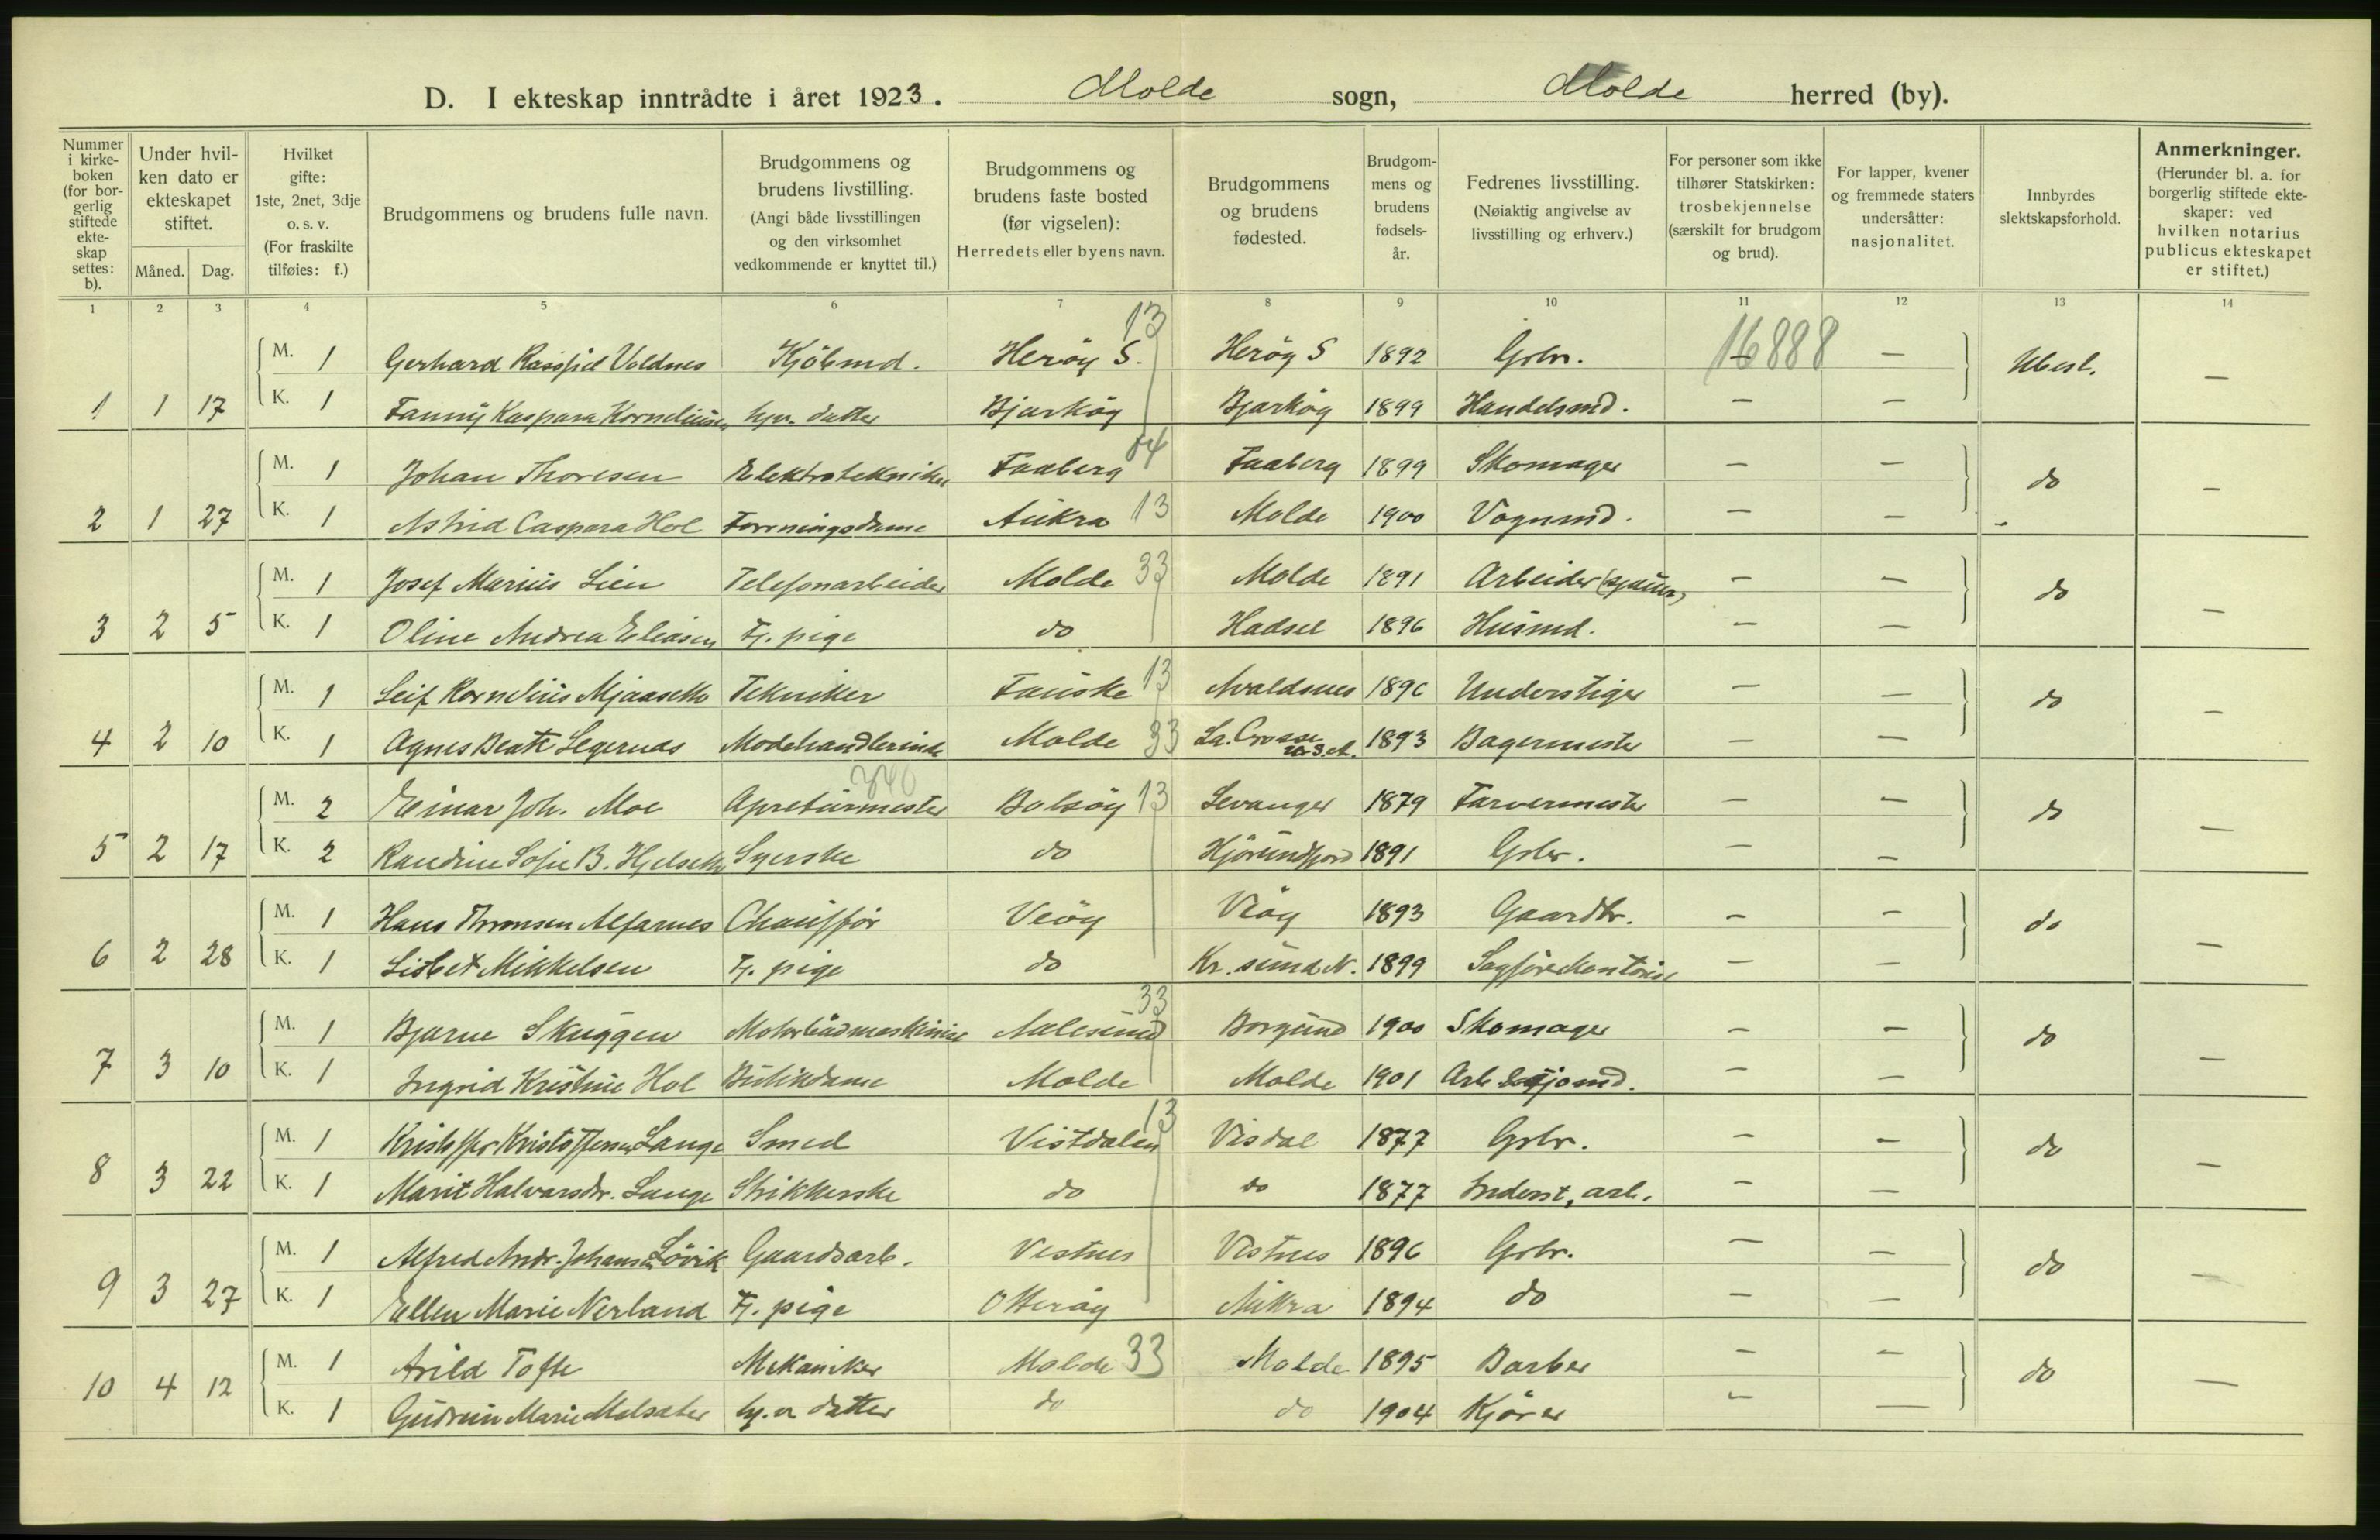 D. I ekteskap inntrådte i året 1923. Molde sogn, Molde herred (by).
Nummer i kirkeboken (for borgerlig stiftede ekteskap settes: b).
Under hvilken dato er ekteskapet stiftet.
Måned. Dag.
Hvilket gifte: 1ste, 2net, 3dje o. s. v. (For fraskilte tilføies: f.)
Brudgommens og brudens fulle navn.
Brudgommens og brudens livstilling. (Angi både livsstillingen og den virksomhet vedkommende er knyttet til.)
Brudgommens og brudens faste bosted (før vigselen): Herredets eller byens navn.
Brudgommens og brudens fødested.
Brudgommens og brudens fødselsår.
Fedrenes livsstilling. (Nøiaktig angivelse av livsstilling og erhverv.)
For personer som ikke tilhører Statskirken: trosbekjennelse (særskilt for brudgom og brud).
For lapper, kvener og fremmede staters undersåtter: nasjonalitet.
Innbyrdes slektskapsforhold.
Anmerkninger. (Herunder bl. a. for borgerlig stiftede ekteskaper: ved hvilken notarius publicus ekteskapet er stiftet.)
1 2 3 4 5 6 7 8 9 10 11 12 13 14
M. 1 Gerhard Voldnes Kjöbmd. Heröy S. 13 Heröy S 1892 Gbr. 16888 — Ubesl. —
1 1 17 K. 1 Fanny Kaspara Korneliusen hjv. datter Bjarköy Bjarköy 1899 Handelsmd. — —
M. 1 Johan Thoresen Elektrotekniker Faaberg 04 Faaberg 1899 Skomager — — do —
2 1 27 K. 1 Astrid Caspara Hol Forretningsdame Aukra 13 Molde 1900 Vognmd. — —
M. 1 Josef Marius Lien Telefonarbeider Molde 33 Molde 1891 Arbeider — — do —
3 2 5 K. 1 Oline Andrea Eliasen Tj. pige do Hadsel 1896 Husmd. — —
M. 1 Leif Kornelius Mjaaseth Tekniker Fauske 13 Avaldsnes 1896 Understiger — — do —
4 2 10 K. 1 Agnes Beate Legernæs Modehandlerinde Molde 33 La. Crosse U.S.A. 1893 Bagermester — —
M. 2 Einar Joh. Moe Apreturmester 340 Bolsöy 13 Levanger 1879 Farvermester — — do —
5 2 17 K. 2 Randine Sofie B. Hjelseth Syerske do Hjörundfjord 1891 Gbr. — —
M. 1 Hans Thronsen Alfarnes Chauffør Veöy Veöy 1893 Gaardbr. — — do —
6 2 28 K. 1 Lisbet Mikkelsen Tj. pige do Kr.sund N. 1899 — —
M. 1 Bjarne Skuggen Motorbaadmaskinist Aalesund 33 Borgund 1900 Skomager — — do —
7 3 10 K. 1 Ingrid Kristine Hol Butikdame Molde Molde 1901 — —
M. 1 Kristoffer Kristoffersen Lange Smed Vistdalen 13 Visdal 1877 Gbr. — — do —
8 3 22 K. 1 Marit Halvarsdr. Lange Strikkerske do do 1877 Inderst, arb. — —
M. 1 Alfred Andr. Johansen Lövik Gaardsarb. Vestnes Vestnes 1896 Gbr. — — do —
9 3 27 K. 1 Ellen Marie Nerland Tj. pige Otteröy Aukra 1894 do — —
M. 1 Arild Tofte Mekaniker Molde 33 Molde 1895 Barber — — do —
10 4 12 K. 1 Gudrun Marie Melsæter hj.v. datter do do 1904 Kjörer — —